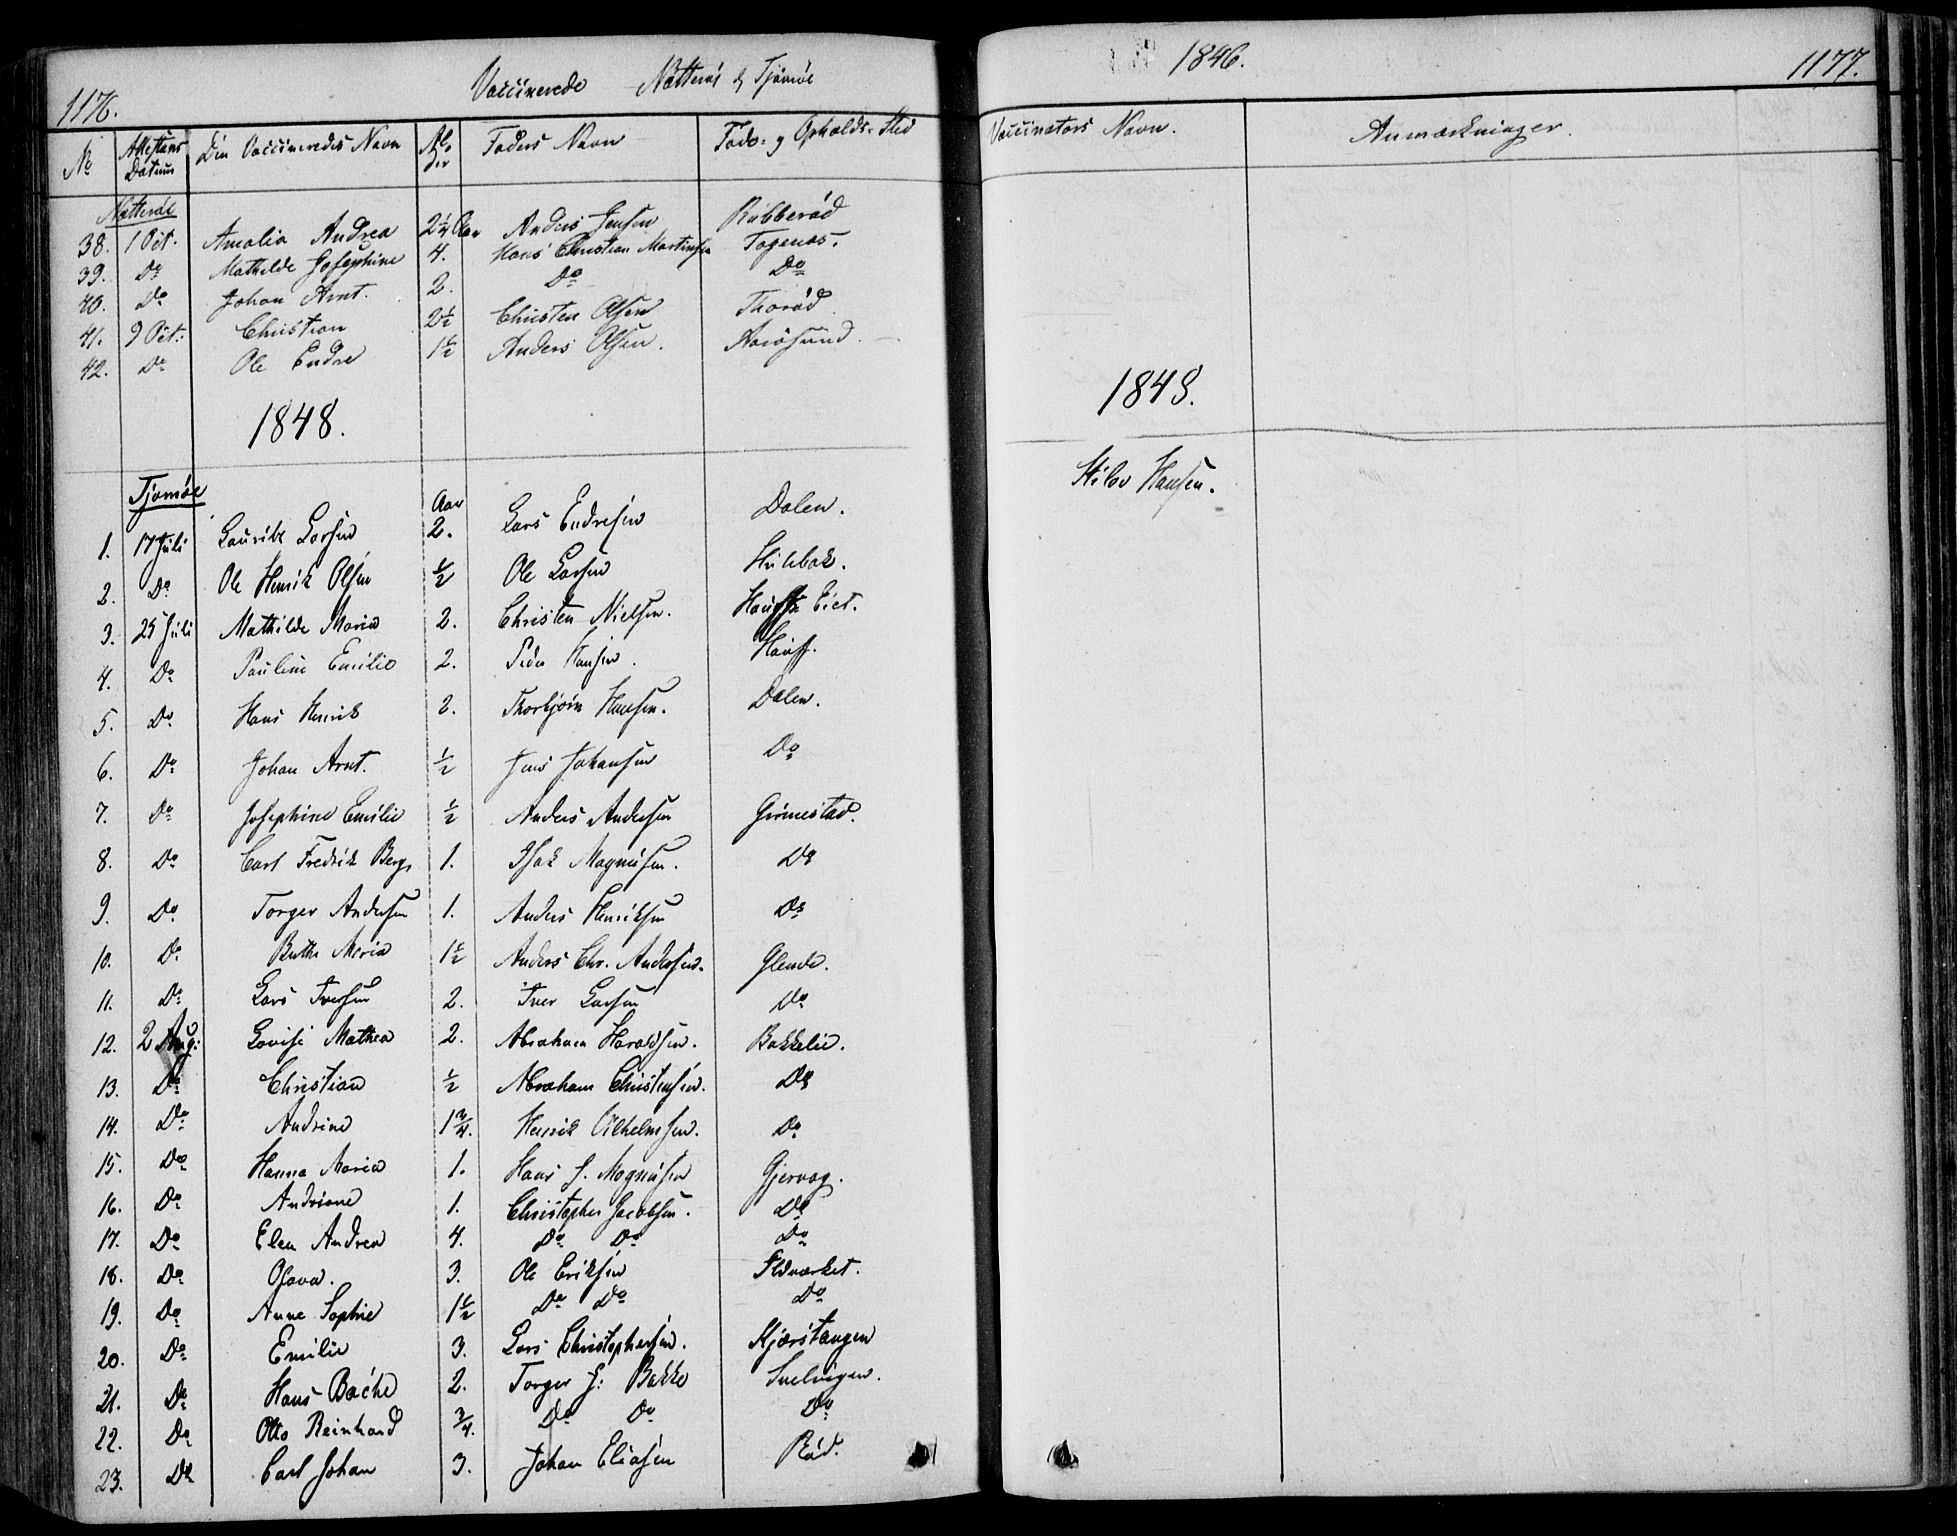 1176.
Vaccinerede Nøtterøe & Tjømøe
No Attestens Datum Den Vaccineredes Navn Alder Faders Navn Føde- og Opholds-Sted
Nøtterøe
38. 1 Oct. Amalia Andrea 2 1/4 Aar Anders Jensen Robberød
39. Do Mathilde Josephine 4. Hans Christian Martinsen Tøgenæs.
40. Do Johan Arnt. 2. Do Do
41. 9 Oct: Christian 2 1/2 Christen Olsen Thorød
42. Do Ole Endre 1 1/2 Anders Olsen. Aarøsund.
1848.
Tjømøe
Aar
1. 17 Juli Laurits Larsen 2. Lars Endresen Dalen.
2. Do Ole Henrik Olsen 1/2 Ole Larsen Hulebak.
3. 25 Juli Mathilde Maria 2. Christen Nielsen. Eiet.
4. Do Pauline Emilie 2. Peder Hansen.
5. Do Hans Henrik 2. Thorbjørn Hansen. Dalen.
6. Do Johan Arnt. 1/2 Jens Johansen Do
7. Do Josephine Emilie 1/2 Anders Andersen Grimestad.
8. Do Carl Fredrik Berg, 1. Isak Magnusen. Do
9. Do Torger Andersen 1. Anders Henriksen Do
10. Do Maria 1 1/2 Anders Chr. Andersen. Glende.
11. Do Lars Iversen 2. Iver Larsen Do
12. 2 Aug: Lovise Mathea 2. Abraham Haraldsen. Bakkelie.
13. Do Christian 1/2 Abraham Christensen. Do
14. Do Andrine 1 3/4. Henrik Vilhelmsen. Do
15. Do Hanna Maria 1. Hans J. Magnusen Gjervaag.
16. Do Andriane 1. Christopher Jacobsen. Do
17. Do Elen Andrea 4. Do Do Do
18. Do Olava. 3. Ole Eriksen Sidværket.
19. Do Anne Sophie 1 1/2 Do Do Do
20. Do Emilie 3. Lars Christophersen. Kjærstangen
21. Do Hans Bache 2. Torger J: Bakke Snelvigen.
22. Do Otto Reinhard 3/4. Do Do Do
23. Do Carl Johan 3. Johan Eliasen Rød.
1846.
1177.
Vaccinators Navn. Anmærkninger.
1848.
Hansen.